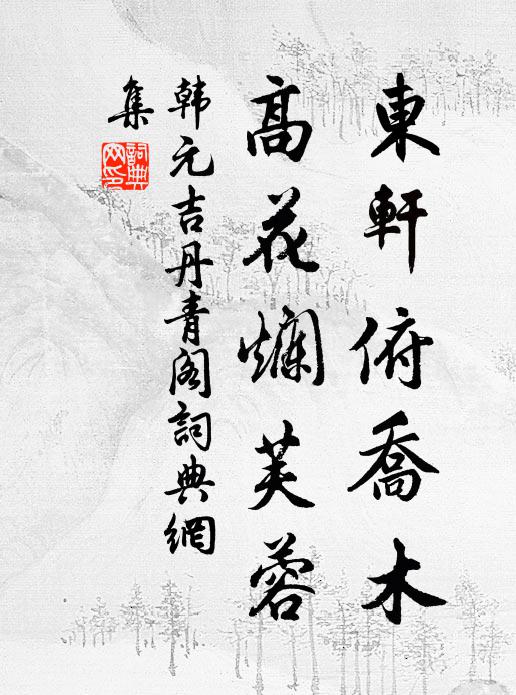 東軒俯喬木
高花爛芙蓉
韩元吉丹青阁詞典網
集
詞典網印